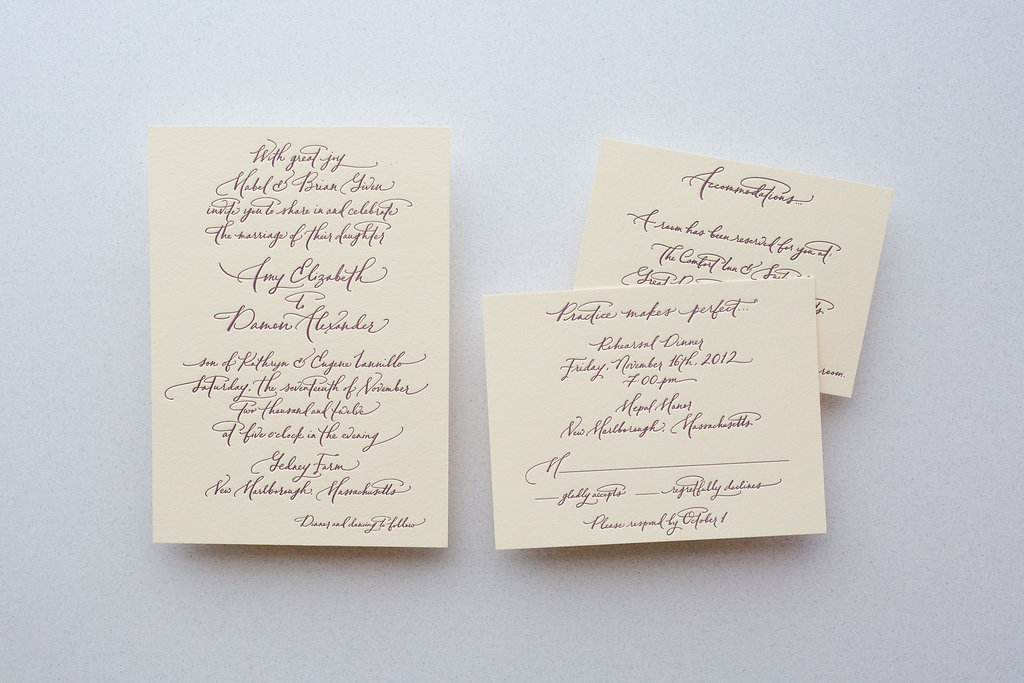 With great joy
Mabel & Brian Given
invite you to share in and celebrate
the marriage of their daughter
Amy Elizabeth
to
Damon Alexander
son of Kathryn & Eugene Iannillo
Saturday, the seventeenth of November
two thousand and twelve
at five o'clock in the evening
Gedney Farm
New Marlborough, Massachusetts
Dinner and dancing to follow
Accommodations...
A room has been reserved for you at:
The Comfort Inn &
Great
room.
Practice makes perfect...
Rehearsal Dinner
Friday, November 16th, 2012
7:00 pm
Mepal Manor
New Marlborough, Massachusetts
M
gladly accepts regretfully declines
Please respond by October 1